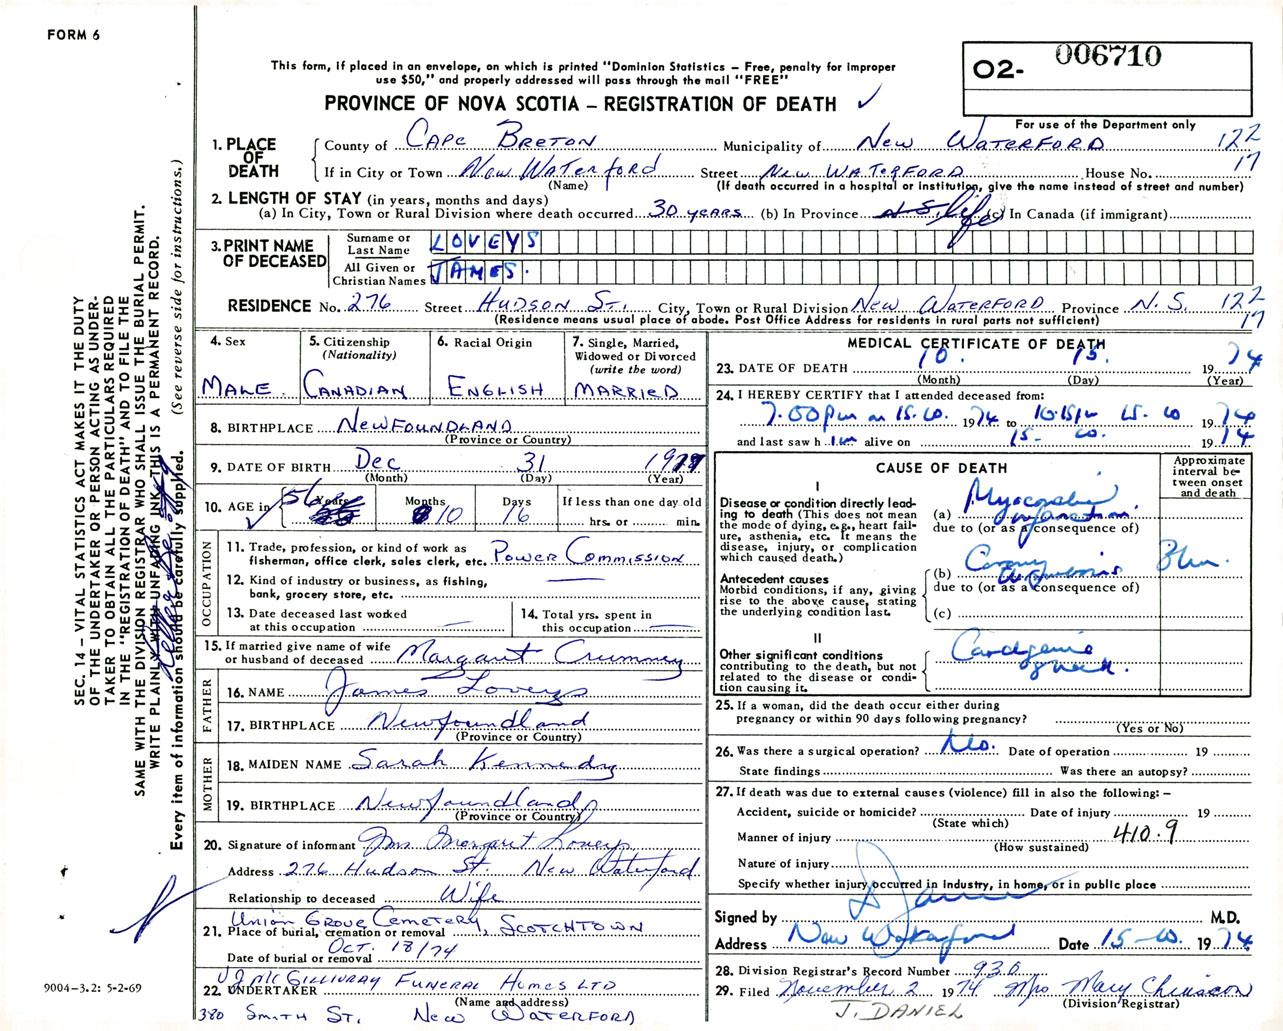 FORM 6
This form, if placed in an envelope, on which is printed "Dominion Statistics – Free, penalty for improper
use $50," and properly addressed will pass through the mail "FREE"
PROVINCE OF NOVA SCOTIA – REGISTRATION OF DEATH ✓
O2- 006710
For use of the Department only
1. PLACE OF DEATH
County of Cape Breton Municipality of New Waterford 122
If in City or Town New Waterford Street New Waterford House No. 17
(Name) (If death occurred in a hospital or institution, give the name instead of street and number)
2. LENGTH OF STAY (in years, months and days)
(a) In City, Town or Rural Division where death occurred 30 years (b) In Province N.S. life (c) In Canada (if immigrant)
3. PRINT NAME OF DECEASED
Surname or Last Name LOVEYS
All Given or Christian Names JAMES.
RESIDENCE No. 276 Street Hudson St. City, Town or Rural Division New Waterford Province N.S. 122
(Residence means usual place of abode. Post Office Address for residents in rural parts not sufficient) 17
4. Sex
MALE
5. Citizenship
(Nationality)
CANADIAN
6. Racial Origin
ENGLISH
7. Single, Married,
Widowed or Divorced
(write the word)
MARRIED
8. BIRTHPLACE NEWFOUNDLAND
(Province or Country)
9. DATE OF BIRTH Dec 31 19
(Month) (Day) (Year)
10. AGE in 56 Years Months 10 Days 16 If less than one day old
hrs. or min.
OCCUPATION
11. Trade, profession, or kind of work as
fisherman, office clerk, sales clerk, etc. Power Commission
12. Kind of industry or business, as fishing,
bank, grocery store, etc.
13. Date deceased last worked
at this occupation
14. Total yrs. spent in
this occupation
15. If married give name of wife
or husband of deceased Margaret Crummey
FATHER
16. NAME James Loveys
17. BIRTHPLACE Newfoundland
(Province or Country)
MOTHER
18. MAIDEN NAME Sarah Kennedy
19. BIRTHPLACE Newfoundland
(Province or Country)
20. Signature of informant Mrs Margaret Loveys
Address 276 Hudson St. New Waterford
Relationship to deceased Wife
Union Grove Cemetery, Scotchtown
21. Place of burial, cremation or removal
Date of burial or removal Oct. 18/74
22. UNDERTAKER V J McGillivray Funeral Homes Ltd
(Name and address)
380 Smith St. New Waterford
MEDICAL CERTIFICATE OF DEATH
23. DATE OF DEATH 10. 15. 19 74
(Month) (Day) (Year)
24. I HEREBY CERTIFY that I attended deceased from:
7.00 pm on 15.10. 1974 to 10.15 pm 15-10 1974
and last saw h im alive on 15-10. 1974
CAUSE OF DEATH
Approximate interval between onset and death
I
Disease or condition directly leading to death (This does not mean the mode of dying, e.g., heart failure, asthenia, etc. It means the disease, injury, or complication which caused death.)
(a) Myocardial infarction.
due to (or as a consequence of)
Antecedent causes
Morbid conditions, if any, giving rise to the above cause, stating the underlying condition last.
(b) Coronary
due to (or as a consequence of)
(c)
II
Other significant conditions
contributing to the death, but not related to the disease or condition causing it.
Cardiogenic shock.
25. If a woman, did the death occur either during
pregnancy or within 90 days following pregnancy?
(Yes or No)
26. Was there a surgical operation? No. Date of operation 19
State findings Was there an autopsy?
27. If death was due to external causes (violence) fill in also the following: –
Accident, suicide or homicide? Date of injury 19
(State which)
Manner of injury 410.9
(How sustained)
Nature of injury
Specify whether injury occurred in Industry, in home, or in public place
Signed by M.D.
Address New Waterford Date 15-10. 1974
28. Division Registrar's Record Number 930
29. Filed November 2 1974 Mrs Mary Chiasson
(Division Registrar)
J. DANIEL
SEC. 14 – VITAL STATISTICS ACT MAKES IT THE DUTY
OF THE UNDERTAKER OR PERSON ACTING AS UNDER-
TAKER TO OBTAIN ALL THE PARTICULARS REQUIRED
IN THE "REGISTRATION OF DEATH" AND TO FILE THE
SAME WITH THE DIVISION REGISTRAR WHO SHALL ISSUE THE BURIAL PERMIT.
WRITE PLAINLY WITH UNFADING INK–THIS IS A PERMANENT RECORD.
Every item of information should be carefully supplied. (See reverse side for instructions.)
9004-3.2: 5-2-69